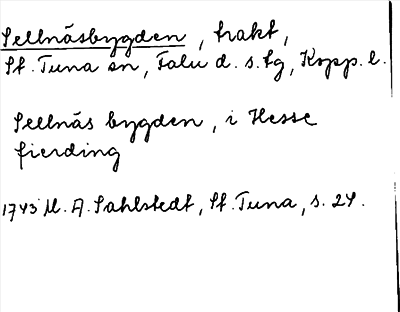 Sellnäsbygden, trakt,
St. Tuna sn, Falu d. s. tg, Kopp. l.
Sellnäs bygden, i Hesse
fierding
1743 M. A. Sahlstedt, St. Tuna, s. 24.